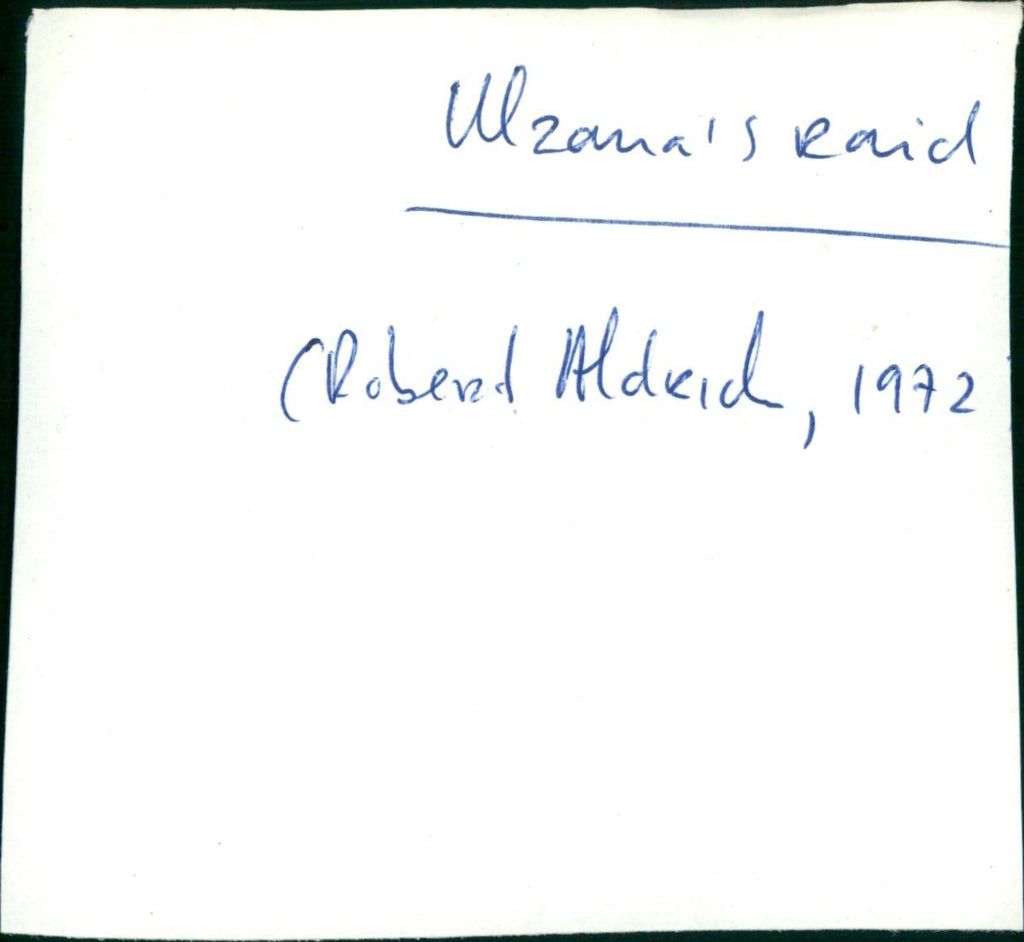 Ulzana's raid
(Robert Aldrich, 1972